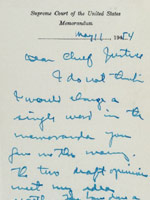 Supreme Court of the United States
Memorandum
May 11, 1954
Dear Chief Justice
I do not think
I would change a
single word in the
memoranda you
gave me this morning.
The two draft opinions
meet my idea